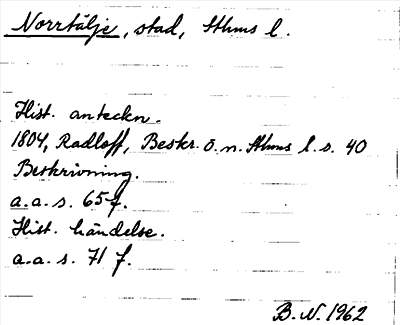 Norrtälje, stad, Sthms l.
Hist. anteckn.
1804, Radloff, Beskr. ö. n. Sthms l. s. 40
Beskrivning.
a.a.s. 65 f.
Hist. händelse.
a.a.s. 71 f.
B.N. 1962